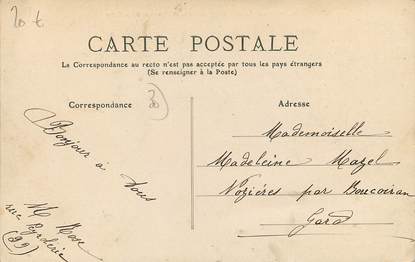 20 €
CARTE POSTALE
La Correspondance au recto n'est pas acceptée par tous les pays étrangers
(Se renseigner à la Poste)
Correspondance
20
Adresse
Bonjour à tous
M
rue
(29)
Mademoiselle
Madeleine Mazel
Nozières par Boucoiran
Gard